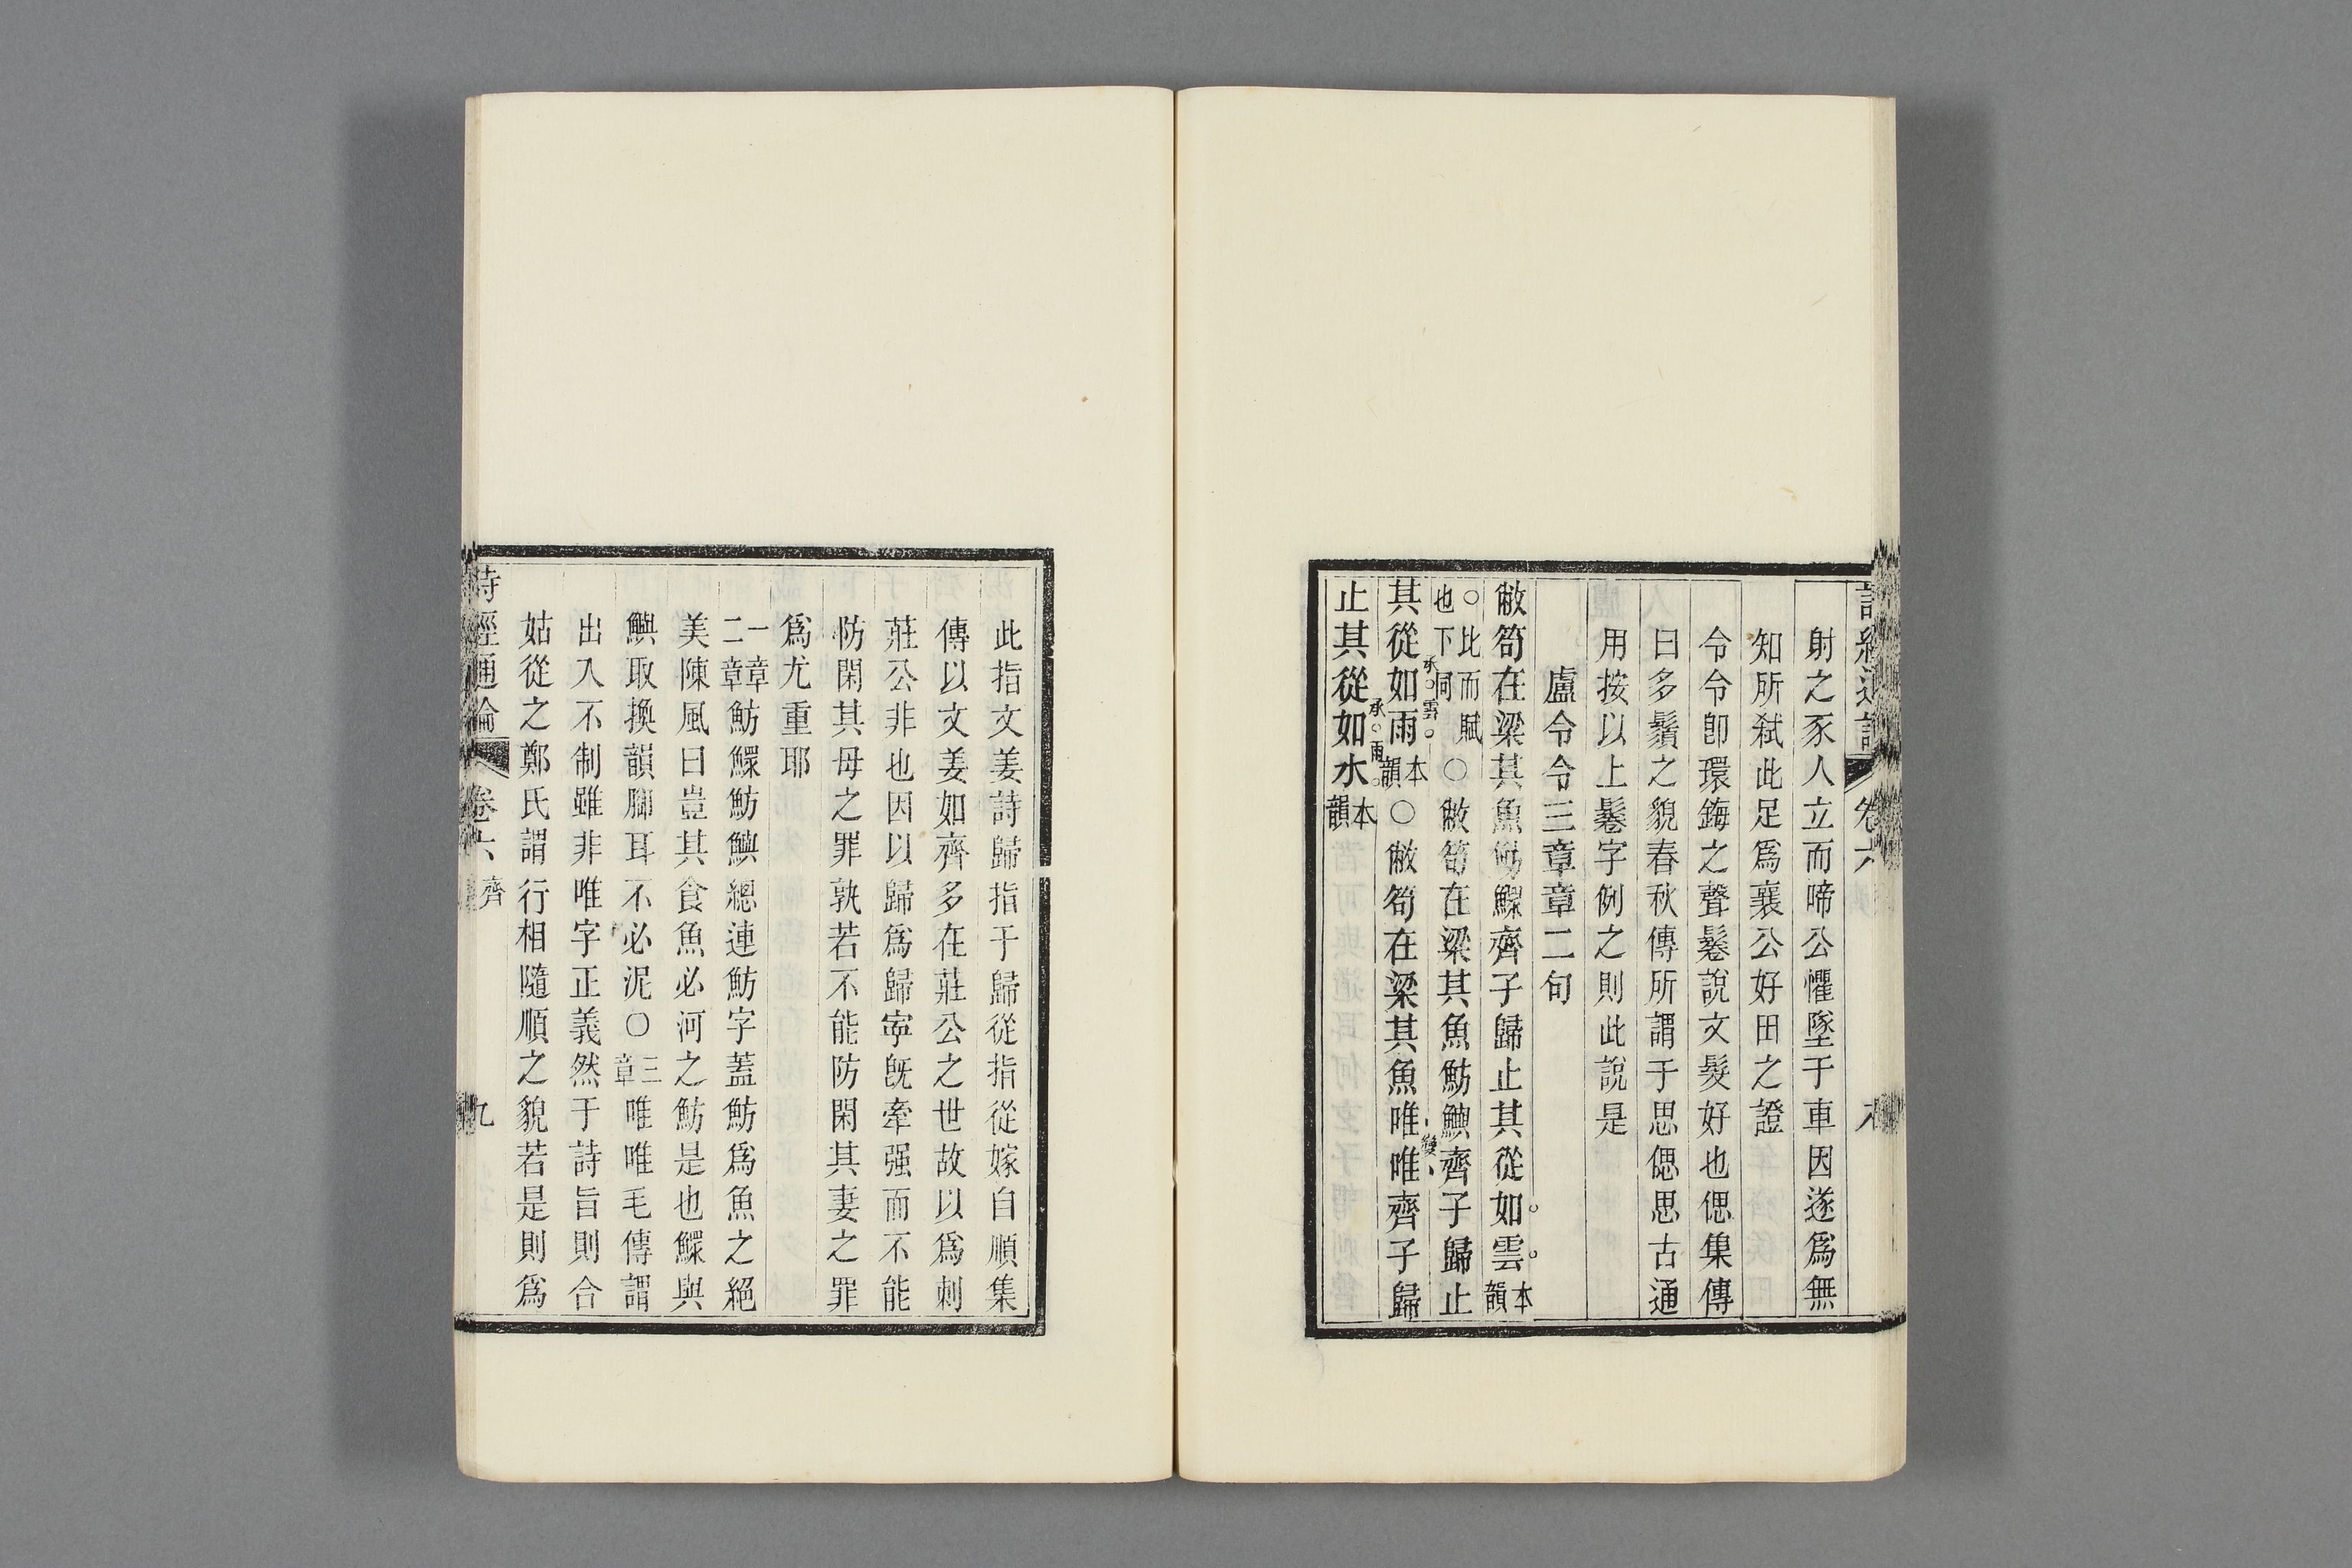 詩經通論 卷六 八
射之豕人立而啼公懼墜于車因遂爲無
知所弒此足爲襄公好田之證
令令卽環鋂之聲鬈說文髮好也偲集傳
曰多鬚之貌春秋傳所謂于思偲思古通
用按以上鬈字例之則此說是
盧令令三章章二句
敝笱在梁其魚魴鰥齊子歸止其從如雲本韻
○比而賦也下同○敝笱在梁其魚魴鱮齊子歸止
其從如雨承雲本韻○敝笱在梁其魚唯唯變齊子歸
止其從如水承雨本韻
此指文姜詩歸指于歸從指從嫁自順集
傳以文姜如齊多在莊公之世故以爲刺
莊公非也因以歸爲歸寧旣牽强而不能
防閑其母之罪孰若不能防閑其妻之罪
爲尤重耶
一章二章魴鰥魴鱮總連魴字蓋魴爲魚之絕
美陳風曰豈其食魚必河之魴是也鰥與
鱮取換韻腳耳不必泥○三章唯唯毛傳謂
出入不制雖非唯字正義然于詩旨則合
姑從之鄭氏謂行相隨順之貌若是則爲
詩經通論 卷六 齊 九